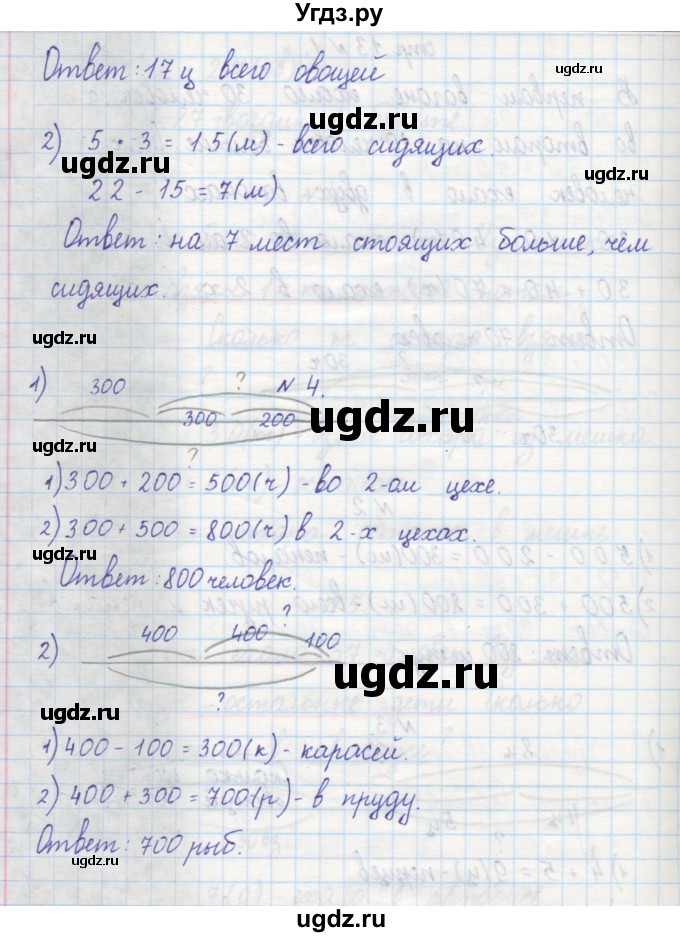 Угдз.ру
Ответ: 17 ц всего овощей
ugdz.ru ugdz.ru
2) 5 · 3 = 15(м) - всего сидящих.
ugdz.ru
22 - 15 = 7(м)
ugdz.ru
Ответ: на 7 мест стоящих больше, чем
сидящих.
ugdz.ru
ugdz.ru ugdz.ru
1) 300 ? N 4.
300 200
ugdz.ru
ugdz.ru
?
1) 300 + 200 = 500(ч) - во 2-ом цехе.
ugdz.ru
2) 300 + 500 = 800(ч) в 2-х цехах.
Ответ: 800 человек.
ugdz.ru
?
2) 400 400 100
ugdz.ru
ugdz.ru
ugdz.ru
?
1) 400 - 100 = 300(к) - карасей.
ugdz.ru
2) 400 + 300 = 700(р) - в пруду.
ugdz.ru
Ответ: 700 рыб.
ugdz.ru
ugdz.ru
ugdz.ru